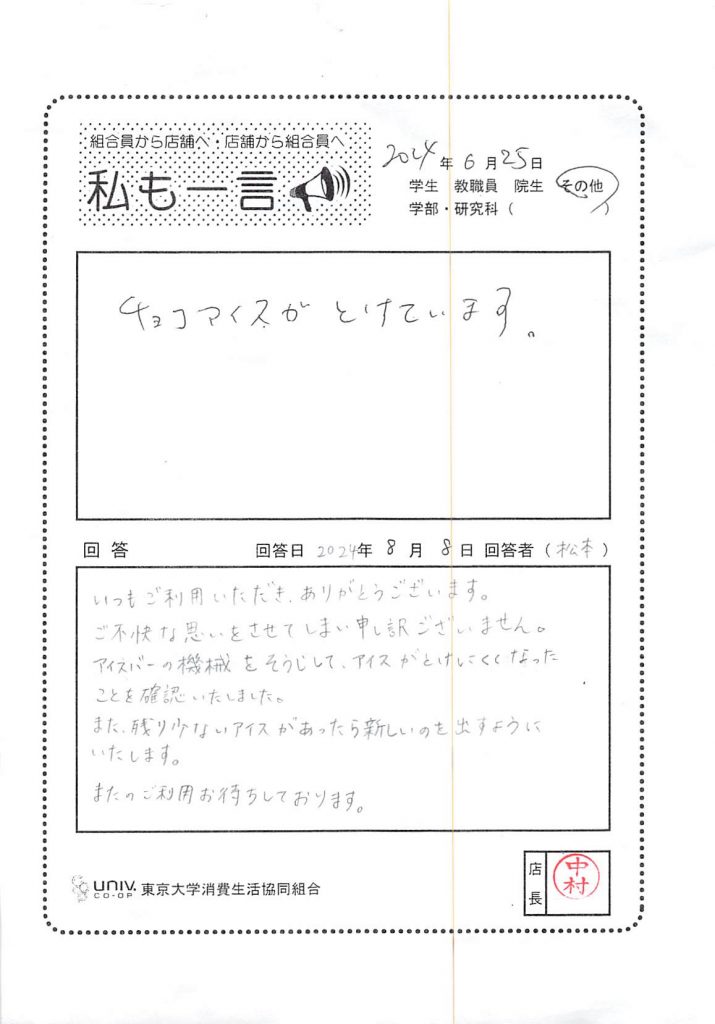 組合員から店舗へ・店舗から組合員へ
私も一言
2024年6月25日
学生 教職員 院生 その他
学部・研究科( )
チョコアイスがとけています。
回答 回答日 2024年8月8日 回答者(松本)
いつもご利用いただき、ありがとうございます。
ご不快な思いをさせてしまい申し訳ございません。
アイスバーの機械をそうじして、アイスがとけにくくなった
ことを確認いたしました。
また、残り少ないアイスがあったら新しいのを出すように
いたします。
またのご利用お待ちしております。
univ. CO-OP 東京大学消費生活協同組合
店長 中村